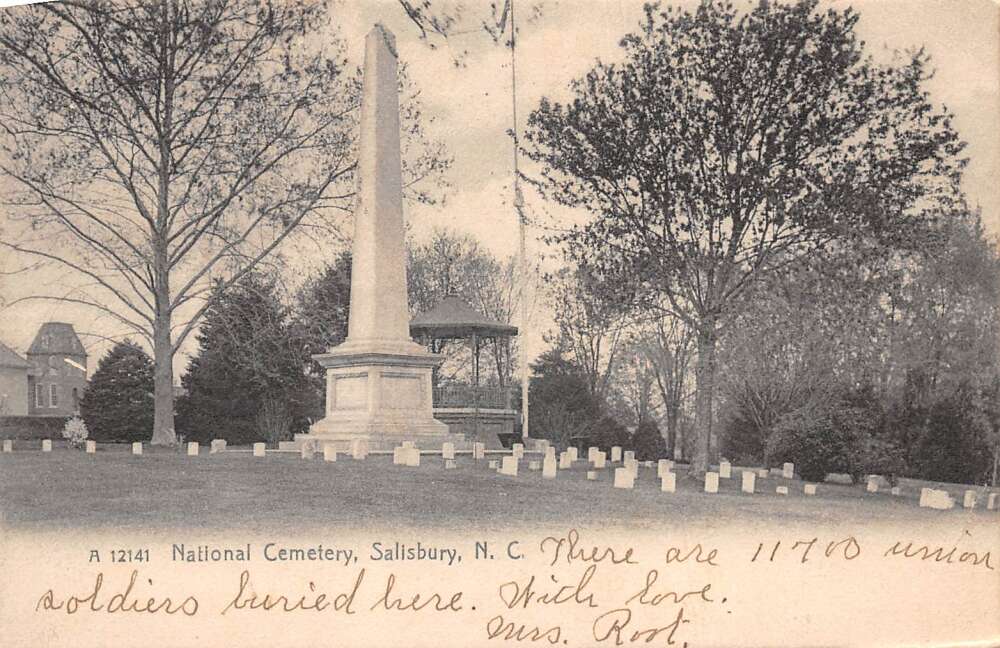 A 12141 National Cemetery, Salisbury, N. C. There are 11700 union
soldiers buried here. With love.
Mrs. Root.